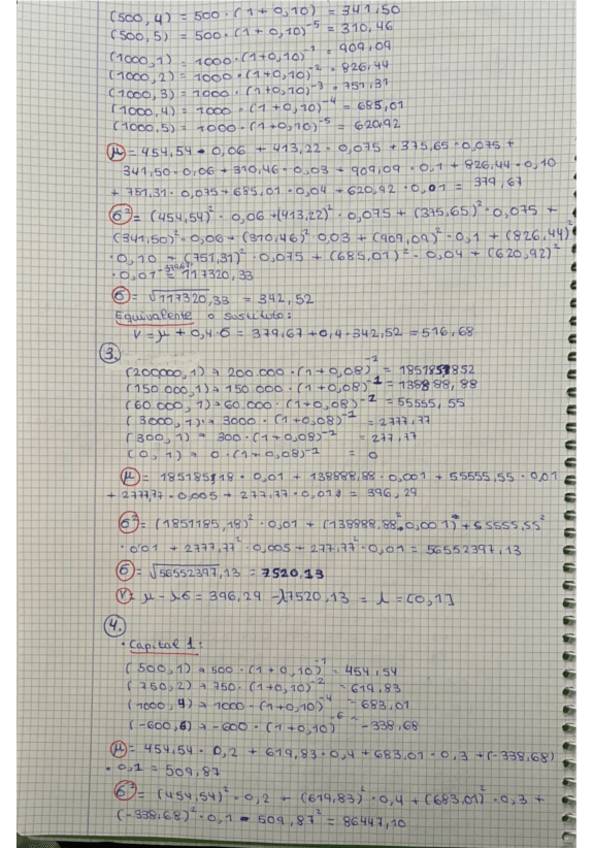 (500,4) = 500·(1+0,10) = 341,50
(500,5) = 500·(1+0,10)^-5 = 310,46
(1000,1) = 1000·(1+0,10)^-1 = 909,09
(1000,2) = 1000·(1+0,10)^-2 = 826,44
(1000,3) = 1000·(1+0,10)^-3 = 751,31
(1000,4) = 1000·(1+0,10)^-4 = 685,01
(1000,5) = 1000·(1+0,10)^-5 = 620,92
μ = 454,54·0,06 + 413,22·0,075 + 375,65·0,075 +
341,50·0,06 + 310,46·0,03 + 909,09·0,1 + 826,44·0,10
+ 751,31·0,075 + 685,01·0,04 + 620,92·0,01 = 379,67
σ² = (454,54)²·0,06 + (413,22)²·0,075 + (375,65)²·0,075 +
(341,50)²·0,06 + (310,46)²·0,03 + (909,09)²·0,1 + (826,44)²
·0,10 + (751,31)²·0,075 + (685,01)²·0,04 + (620,92)²
·0,01 - 379,67² = 117320,33
σ = √117320,33 = 342,52
Equivalente o sustituto:
V = μ + 0,4·σ = 379,67 + 0,4·342,52 = 516,68
3.
(200000,1) → 200.000·(1+0,08)^-1 = 185185,1852
(150.000,1) → 150.000·(1+0,08)^-1 = 138888,88
(60.000,1) → 60.000·(1+0,08)^-1 = 55555,55
(3000,1) → 3000·(1+0,08)^-1 = 2777,77
(300,1) → 300·(1+0,08)^-1 = 277,77
(0,1) → 0·(1+0,08)^-1 = 0
μ = 185185,18·0,01 + 138888,88·0,001 + 55555,55·0,01
+ 2777,77·0,005 + 277,77·0,018 = 396,29
σ² = (1851185,18)²·0,01 + (138888,88²·0,001) + 55555,55²
·0,01 + 2777,77²·0,005 + 277,77²·0,01 = 56552397,13
σ = √56552397,13 = 7520,13
V = μ - λσ = 396,29 - λ7520,13 = λ = [0,1]
4.
· Capital 1:
(500,1) → 500·(1+0,10)^-1 = 454,54
(750,2) → 750·(1+0,10)^-2 = 619,83
(1000,4) → 1000·(1+0,10)^-4 = 683,01
(-600,6) → -600·(1+0,10)^-6 = -338,68
μ = 454,54·0,2 + 619,83·0,4 + 683,01·0,3 + (-338,68)
·0,1 = 509,87
σ² = (454,54)²·0,2 + (619,83)²·0,4 + (683,01)²·0,3 +
(-338,68)²·0,1 - 509,87² = 86447,10